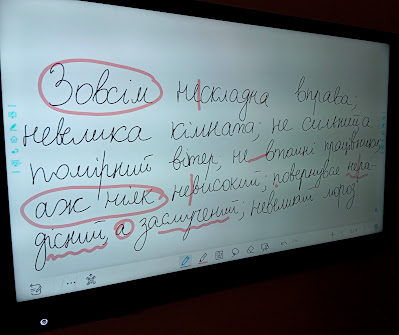 Зовсім нескладна вправа;
невелика кімната; не сильний а
помірний вітер, не втомні працівники;
аж ніяк невисокий; повернувся нера-
дісний, а засмучений; невеликий мороз